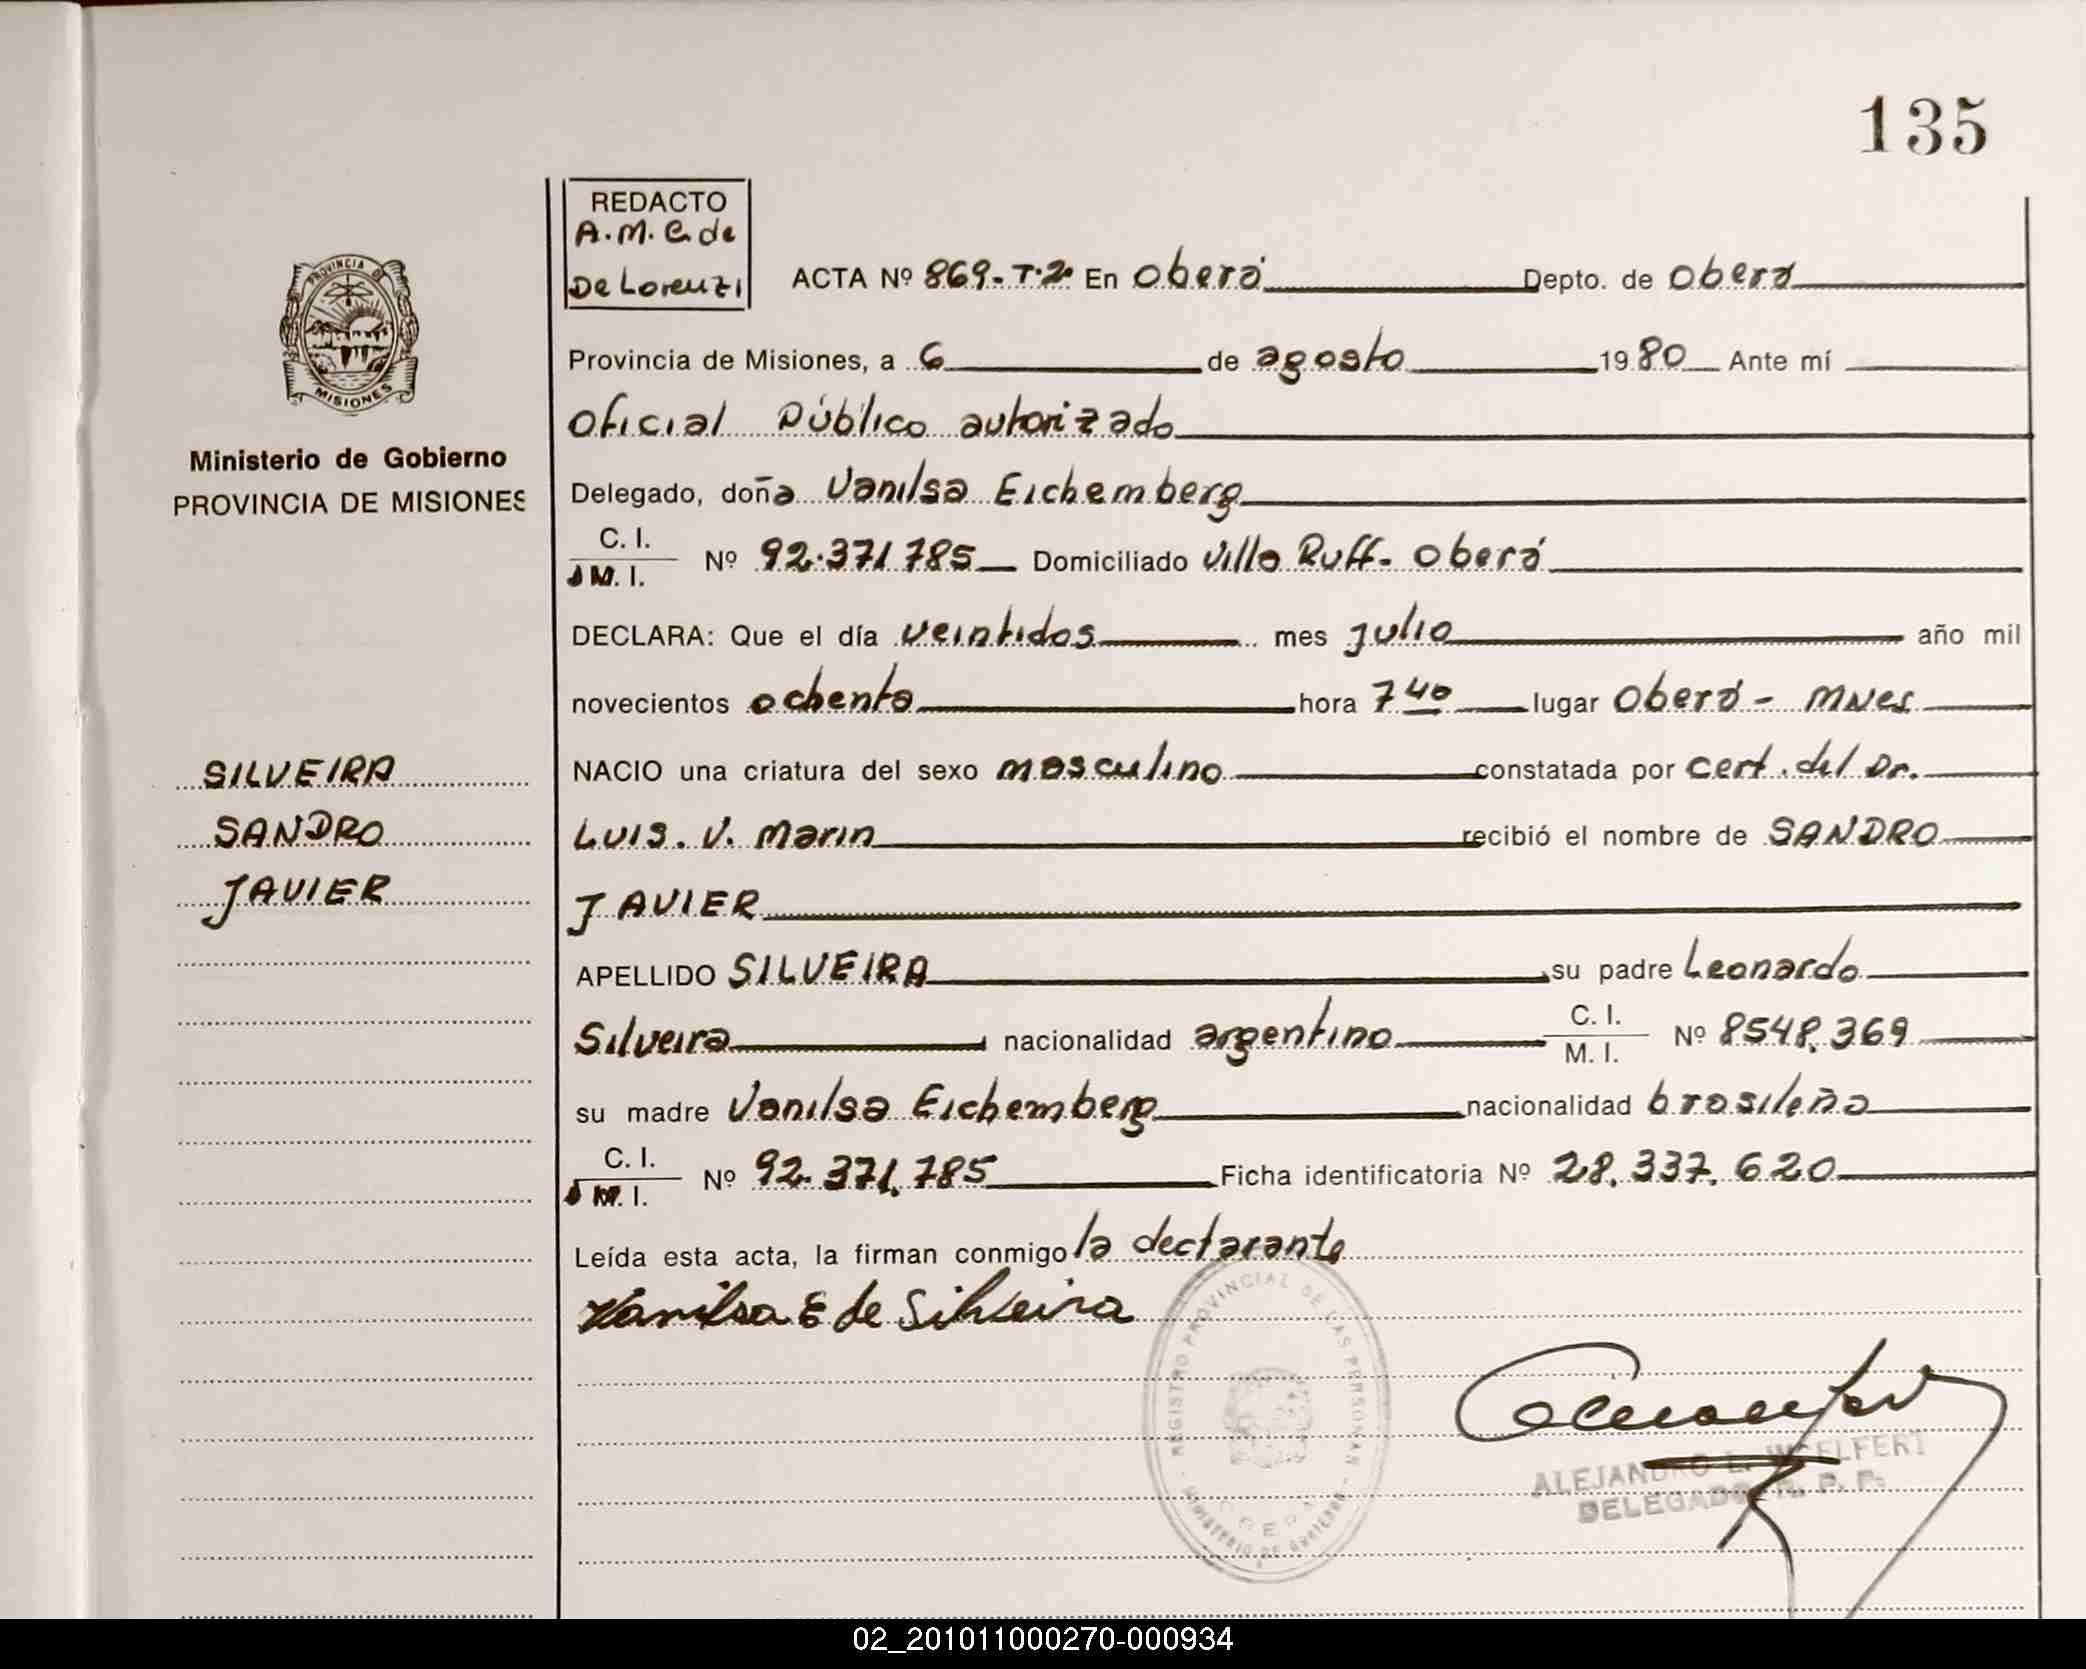 135
REDACTO
A.M.C. de
De Lorenzi
ACTA Nº 869-T.2º En Oberá Depto. de Oberá
Provincia de Misiones, a 6 de agosto 1980 Ante mí
Oficial Público autorizado
PROVINCIA DE
MISIONES
Ministerio de Gobierno
PROVINCIA DE MISIONES
Delegado, doña Vanilsa Eichemberg
C. I.
M. I. Nº 92.371.785 Domiciliado Villa Ruff - Oberá
DECLARA: Que el día veintidos mes julio año mil
novecientos ochenta hora 7 40 lugar Oberá - Mnes
SILVEIRA
SANDRO
JAVIER
NACIO una criatura del sexo masculino constatada por cert. del Dr.
Luis. V. Marin recibió el nombre de SANDRO
JAVIER
APELLIDO SILVEIRA su padre Leonardo
Silveira nacionalidad argentino C. I. M. I. Nº 8548.369
su madre Vanilsa Eichemberg nacionalidad brasileña
C. I.
M. I. Nº 92.371.785 Ficha identificatoria Nº 28.337.620
Leída esta acta, la firman conmigo la declarante
Vanilsa E de Silveira
REGISTRO PROVINCIAL DE LAS PERSONAS
MINISTERIO DE GOBIERNO
ALEJANDRO L.
DELEGADO R. P. P.
02_201011000270-000934